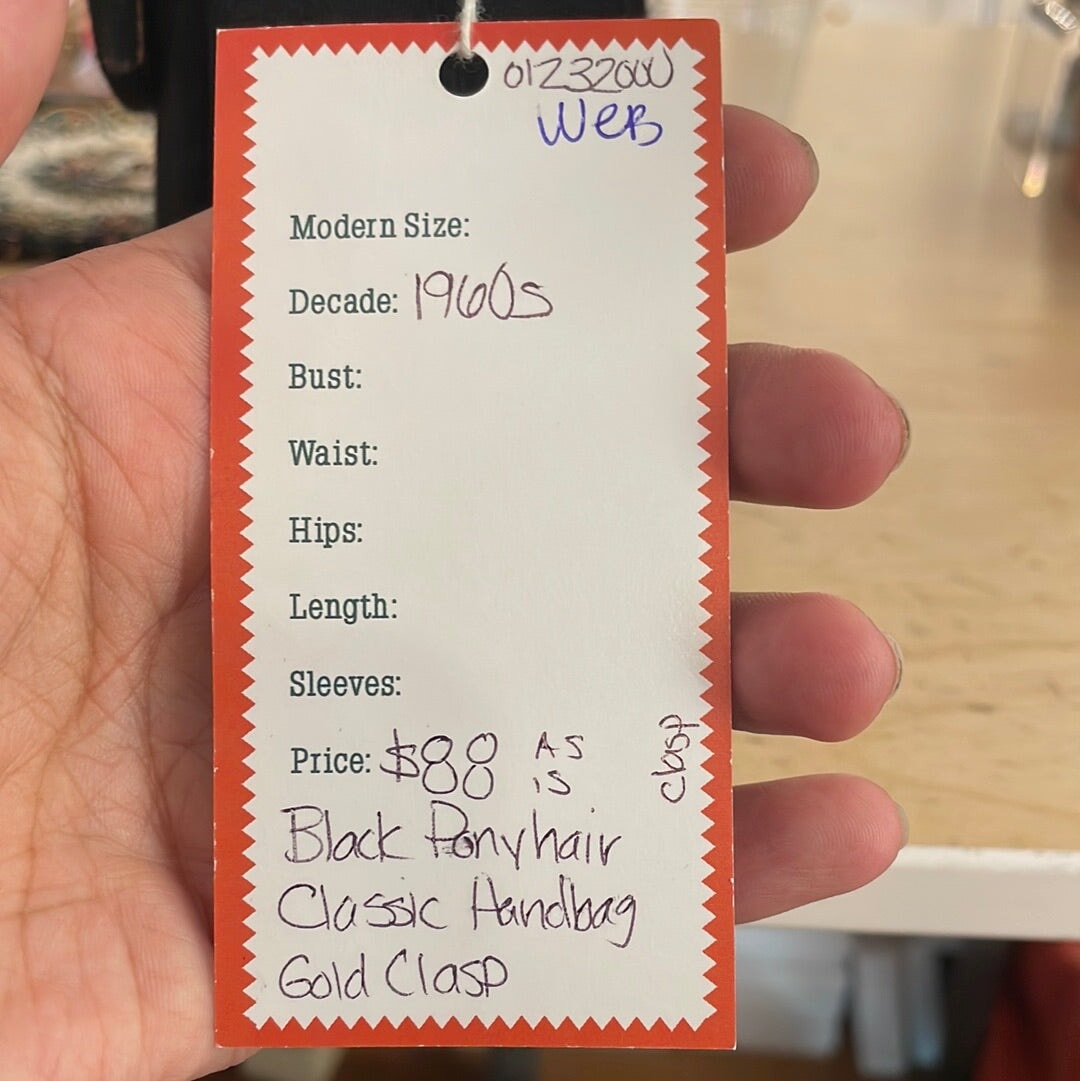 WeB
Modern Size:
Decade: 1960s
Bust:
Waist:
Hips:
Length:
Sleeves:
Price: $88 AS
is
clasp
Black Ponyhair
Classic Handbag
Gold Clasp